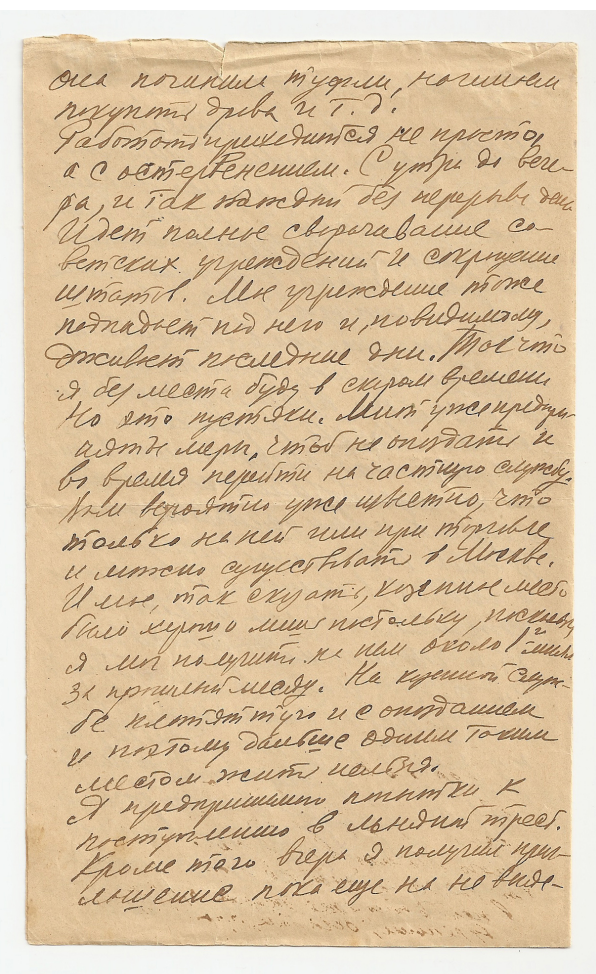 она починила туфли, начинаем
покупать дрова и т. д.
Работать приходится не просто,
а с остервенением. С утра до вече-
ра, и так каждый без перерыва день
Идет полное сворачивание со-
ветских учреждений и сокращение
штатов. Мое учреждение тоже
подпадает под него и, по видимому,
доживает последние дни. Так что
я без места буду в скором времени
Но это пустяки. Мной уже предпри-
няты меры, чтоб не опоздать и
во время перейти на частную службу.
Вам вероятно уже известно, что
только на ней или при торговле
и можно существовать в Москве.
И мне, так сказать, казенное место
было хорошо лишь постольку, поскольку
я мог получить на нем около 1го милл
за прошлый месяц. На казенной служ-
бе платят туго и с опозданием
и поэтому дальше одним таким
местом жить нельзя.
Я предпринимаю попытки к
поступлению в льняной трест.
Кроме того вчера я получил приг-
лашение пока еще на не виде-